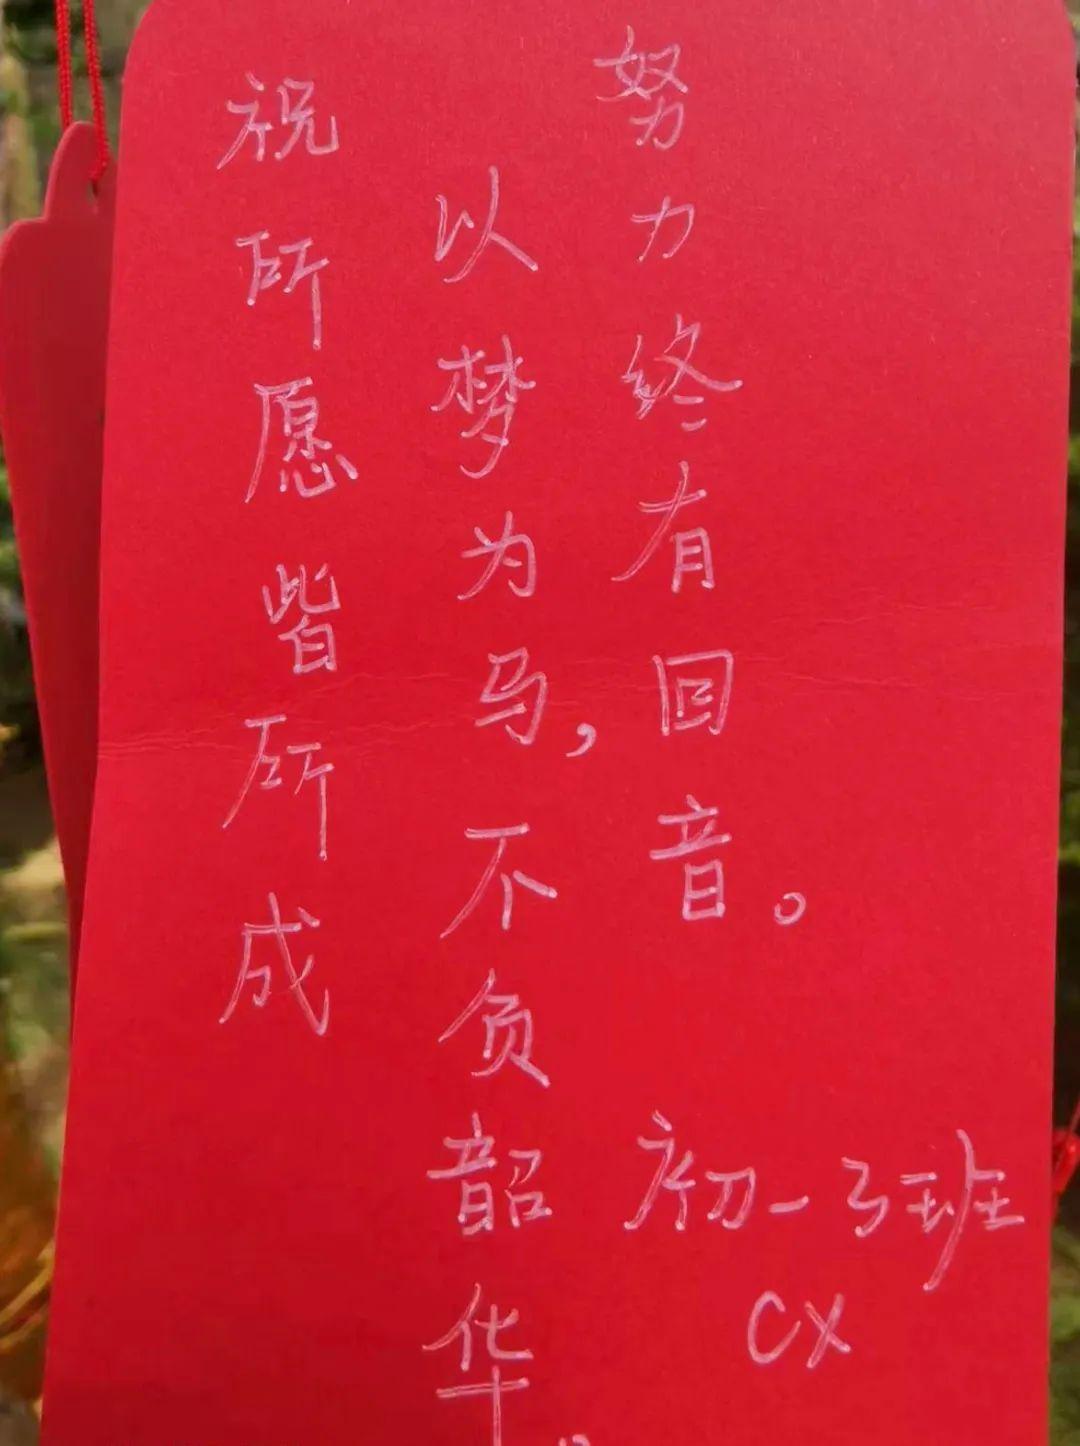 祝所愿皆所成
以梦为马，不负韶华。
努力终有回音。
初一3班
CX